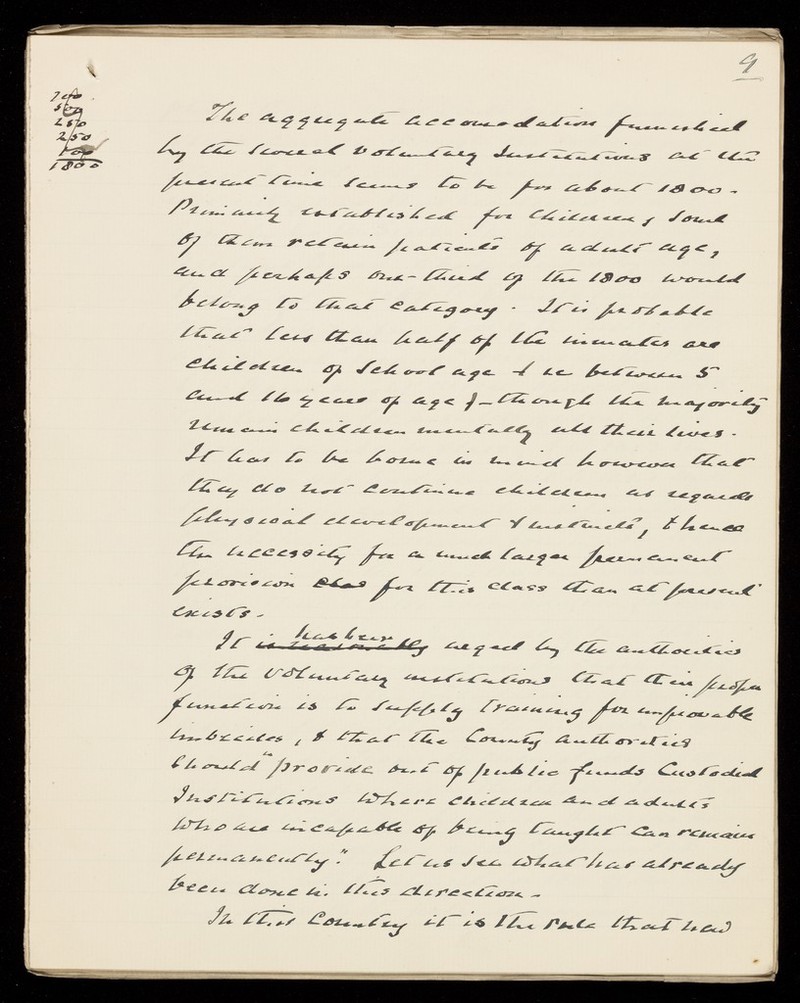 9
700
500
250
250
100
1800
The aggregate accomodation furnished
by the several Voluntary Institutions at the
present time seems to be for about 1800.
Primarily established for children, some
of them retain patients of adult age,
and perhaps one-third of the 1800 would
belong to that category. It is probable
that less than half of the inmates are
children of School age & ie between 5
and 16 years of age) - though the majority
remain children mentally all their lives.
It has to be borne in mind however that
they do not continue children as regards
physical development & instincts, & hence
the necessity for a much larger permanent
provision for this class than at present
exists.
has been
It is reasonably urged by the authorities
of the Voluntary institutions that their proper
function is to supply training for improvable
imbeciles, & that the County authorities
should "provide out of public funds Custodial
Institutions where children and adults
who are incapable of being taught can remain
permanently". Let us see what has already
been done in this direction.
In this Country it is the rule that